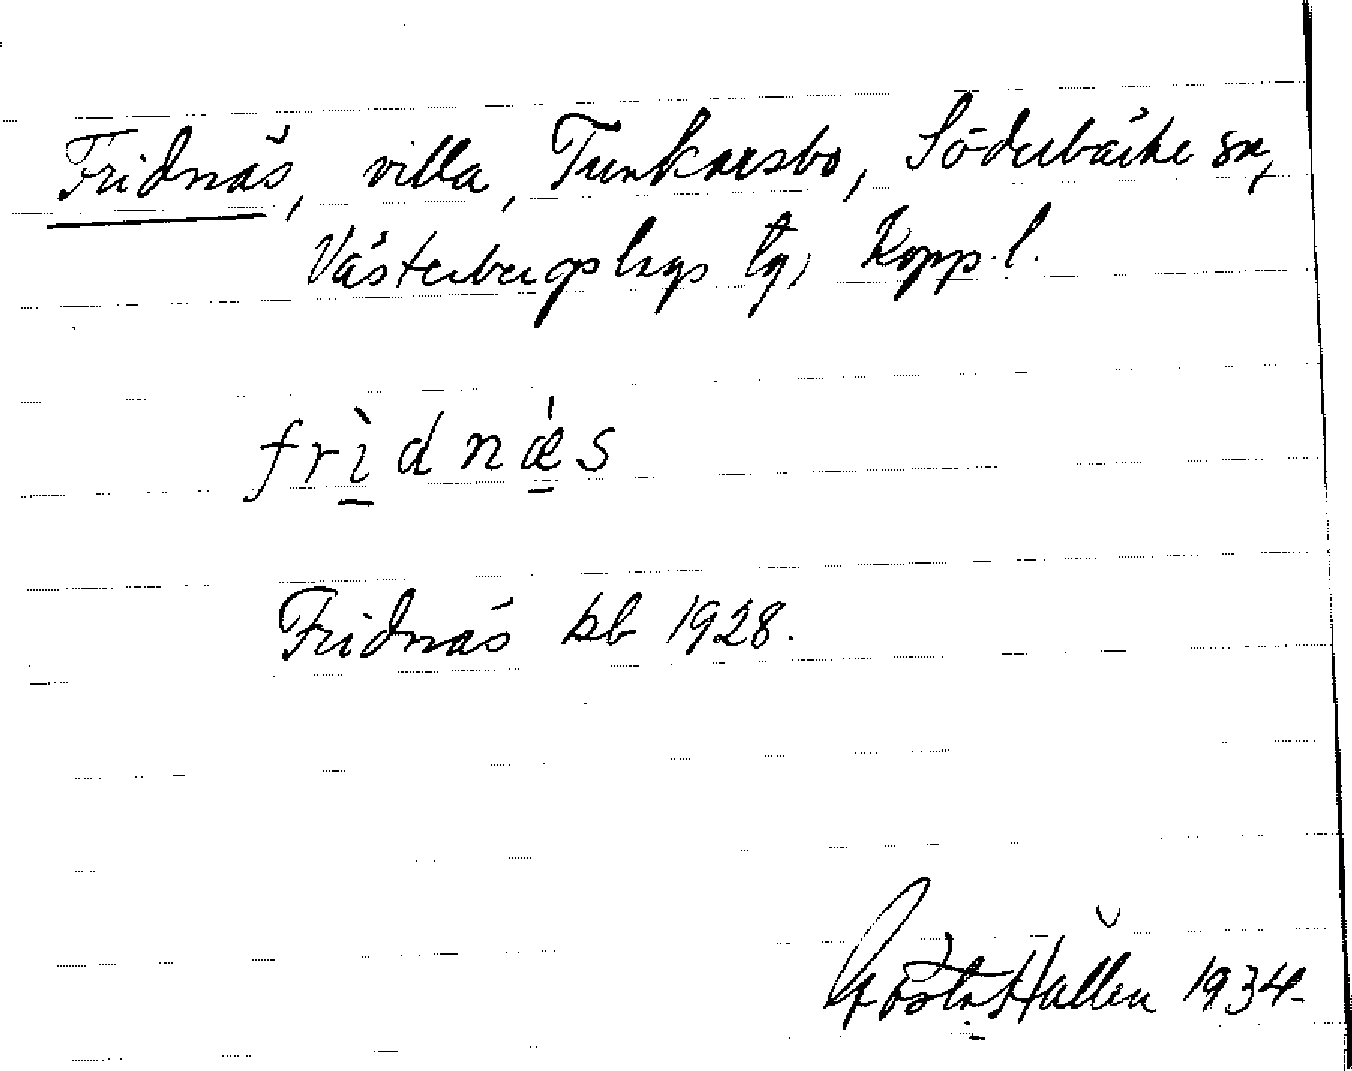 Fridnäs, villa, Tunkarsbo, Söderbärke sn,
Västerbergslags tg, Kopp. l.
frìdnǽs
Fridnäs kb 1928.
Gösta Hallén 1934